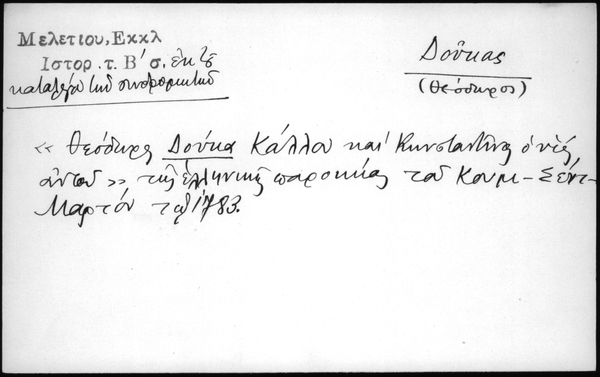 Μελετίου, Εκκλ
Ιστορ. τ. Β′ σ.
κατάλογο των συνδρομητών
Δούκας
(Θεόδωρος)
« Θεόδωρος Δούκα Κάλλου και Κωνσταντίνος ο υιός
αυτού » της ελληνικής παροικίας του Κουμ-Σέντ-
Μαρτόν τω 1783.